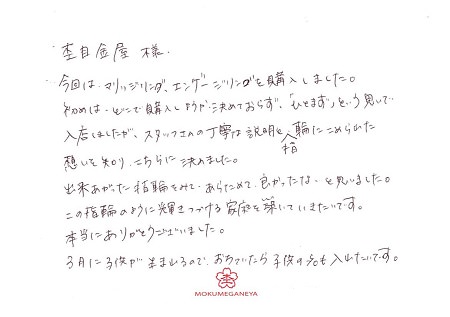 杢目金屋 様.
今回は、マリッジリング、エンゲージリングを購入しました。
初めは、どこで購入しようか決めておらず、「ひとまず」という思いで
入店しましたが、スタッフさんの丁寧な説明と指輪にこめられた
想いを知り、こちらに決めました。
出来あがった指輪をみて、あらためて、良かったな、と思いました。
この指輪のように輝きつづける家庭を築いていきたいです。
本当にありがとうございました。
3月に子供が生まれるので、おちついたら子供の名も入れたいです。
MOKUMEGANEYA